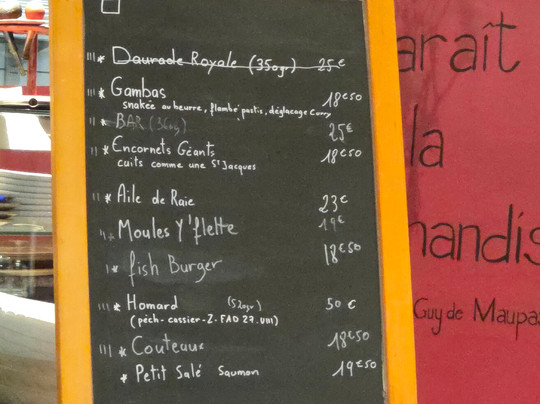 Daurade Royale (350gr) 25€
Gambas 18€50
snakée au beurre, flambé pastis, déglacage Curry
BAR (360g) 25€
Encornets Géants 18€50
cuits comme une St Jacques
Aile de Raie 23€
Moules Y'flette 19€
fish Burger 18€50
Homard (520gr) 50€
(pêch-cassier-Z.FAO 27.VIII)
Couteaux 18€50
Petit Salé Saumon 19€50
araît
la
nandis
Guy de Maupas